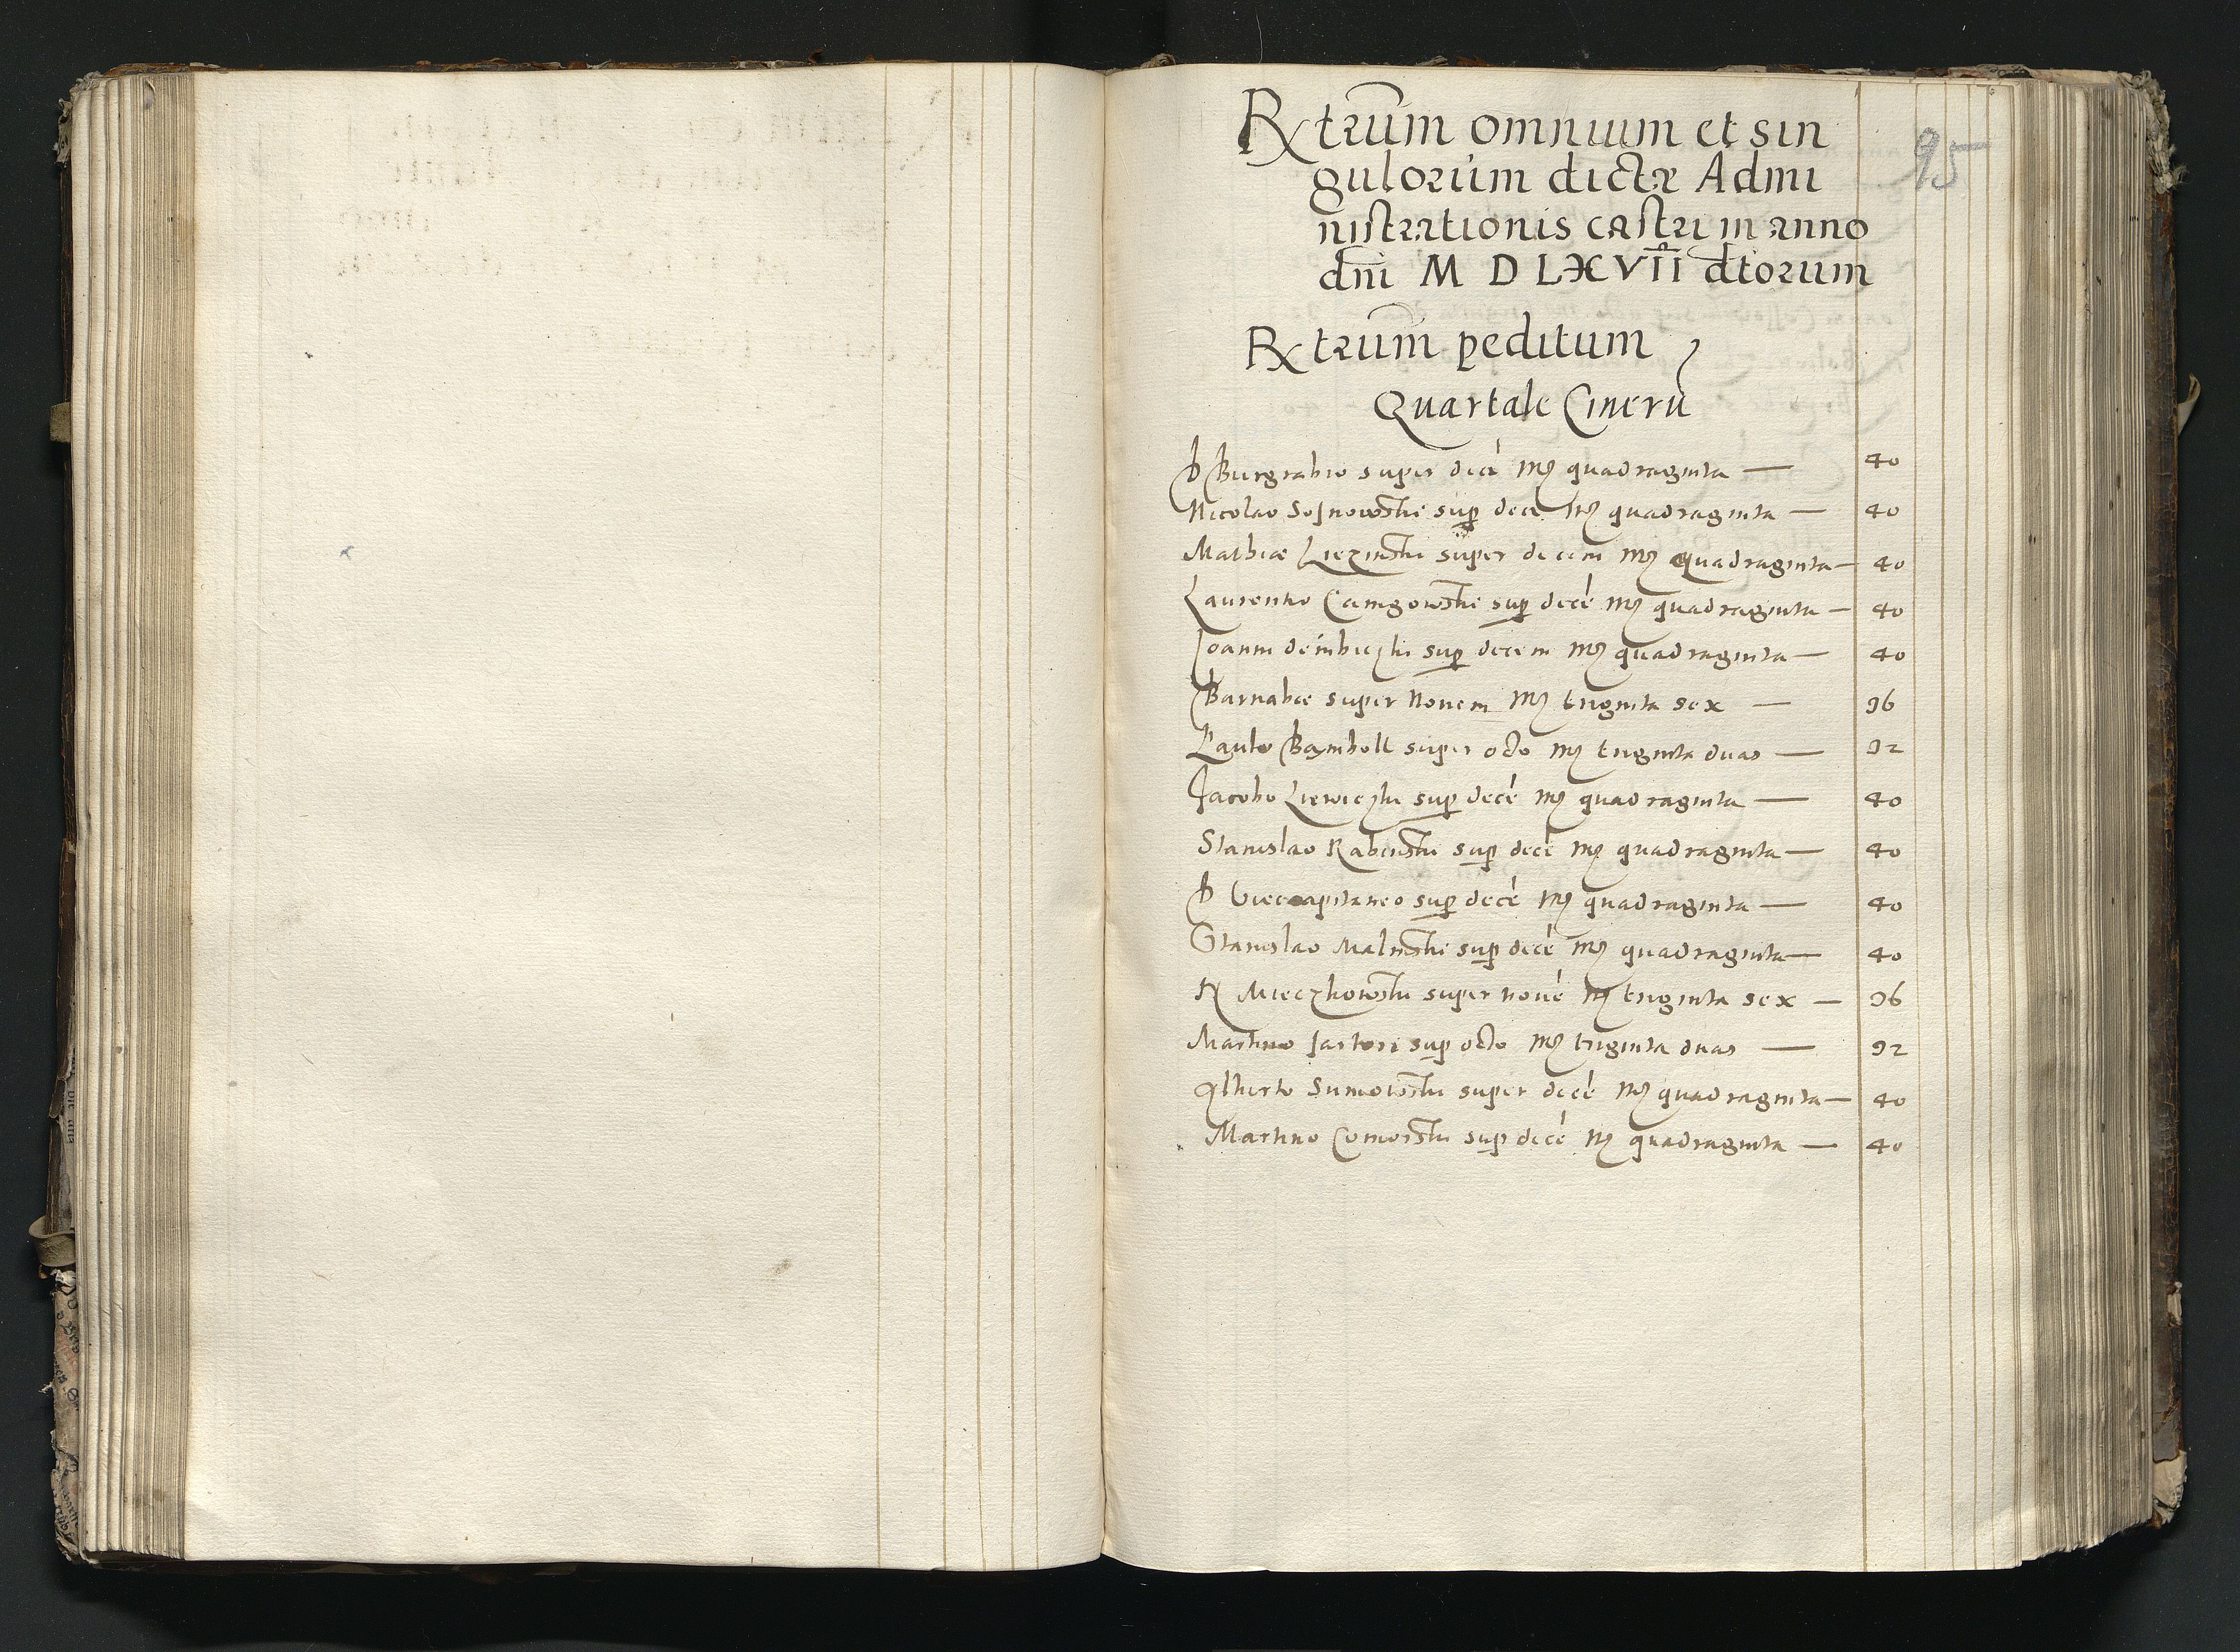 Rxtrum omnium et sin
gulorum dictæ Admi
nistrationis castri in anno
dni M D LXVII dtorum
95
Rxtrum peditum
Quartale Cinerū
D Burgrabio super decē mz quadraginta — 40
Nicolao Sosnowski sup decē mz quadraginta — 40
Mathiæ super decem mz quadraginta — 40
Laurentio sup decē mz quadraginta — 40
Joanni dembiczki sup decem mz quadraginta — 40
Barnabæ super novem mz triginta sex — 36
Paulo super octo mz triginta duas — 32
Jacobo sup decē mz quadraginta — 40
Stanislao Rabinski sup decē mz quadraginta — 40
D Vicecapitaneo sup decē mz quadraginta — 40
Stanislao Malinski sup decē mz quadraginta — 40
Mieczkowski super novē mz triginta sex — 36
Martino sartori sup octo mz triginta duas — 32
Alberto super decē mz quadraginta — 40
Martino Comorski sup decē mz quadraginta — 40